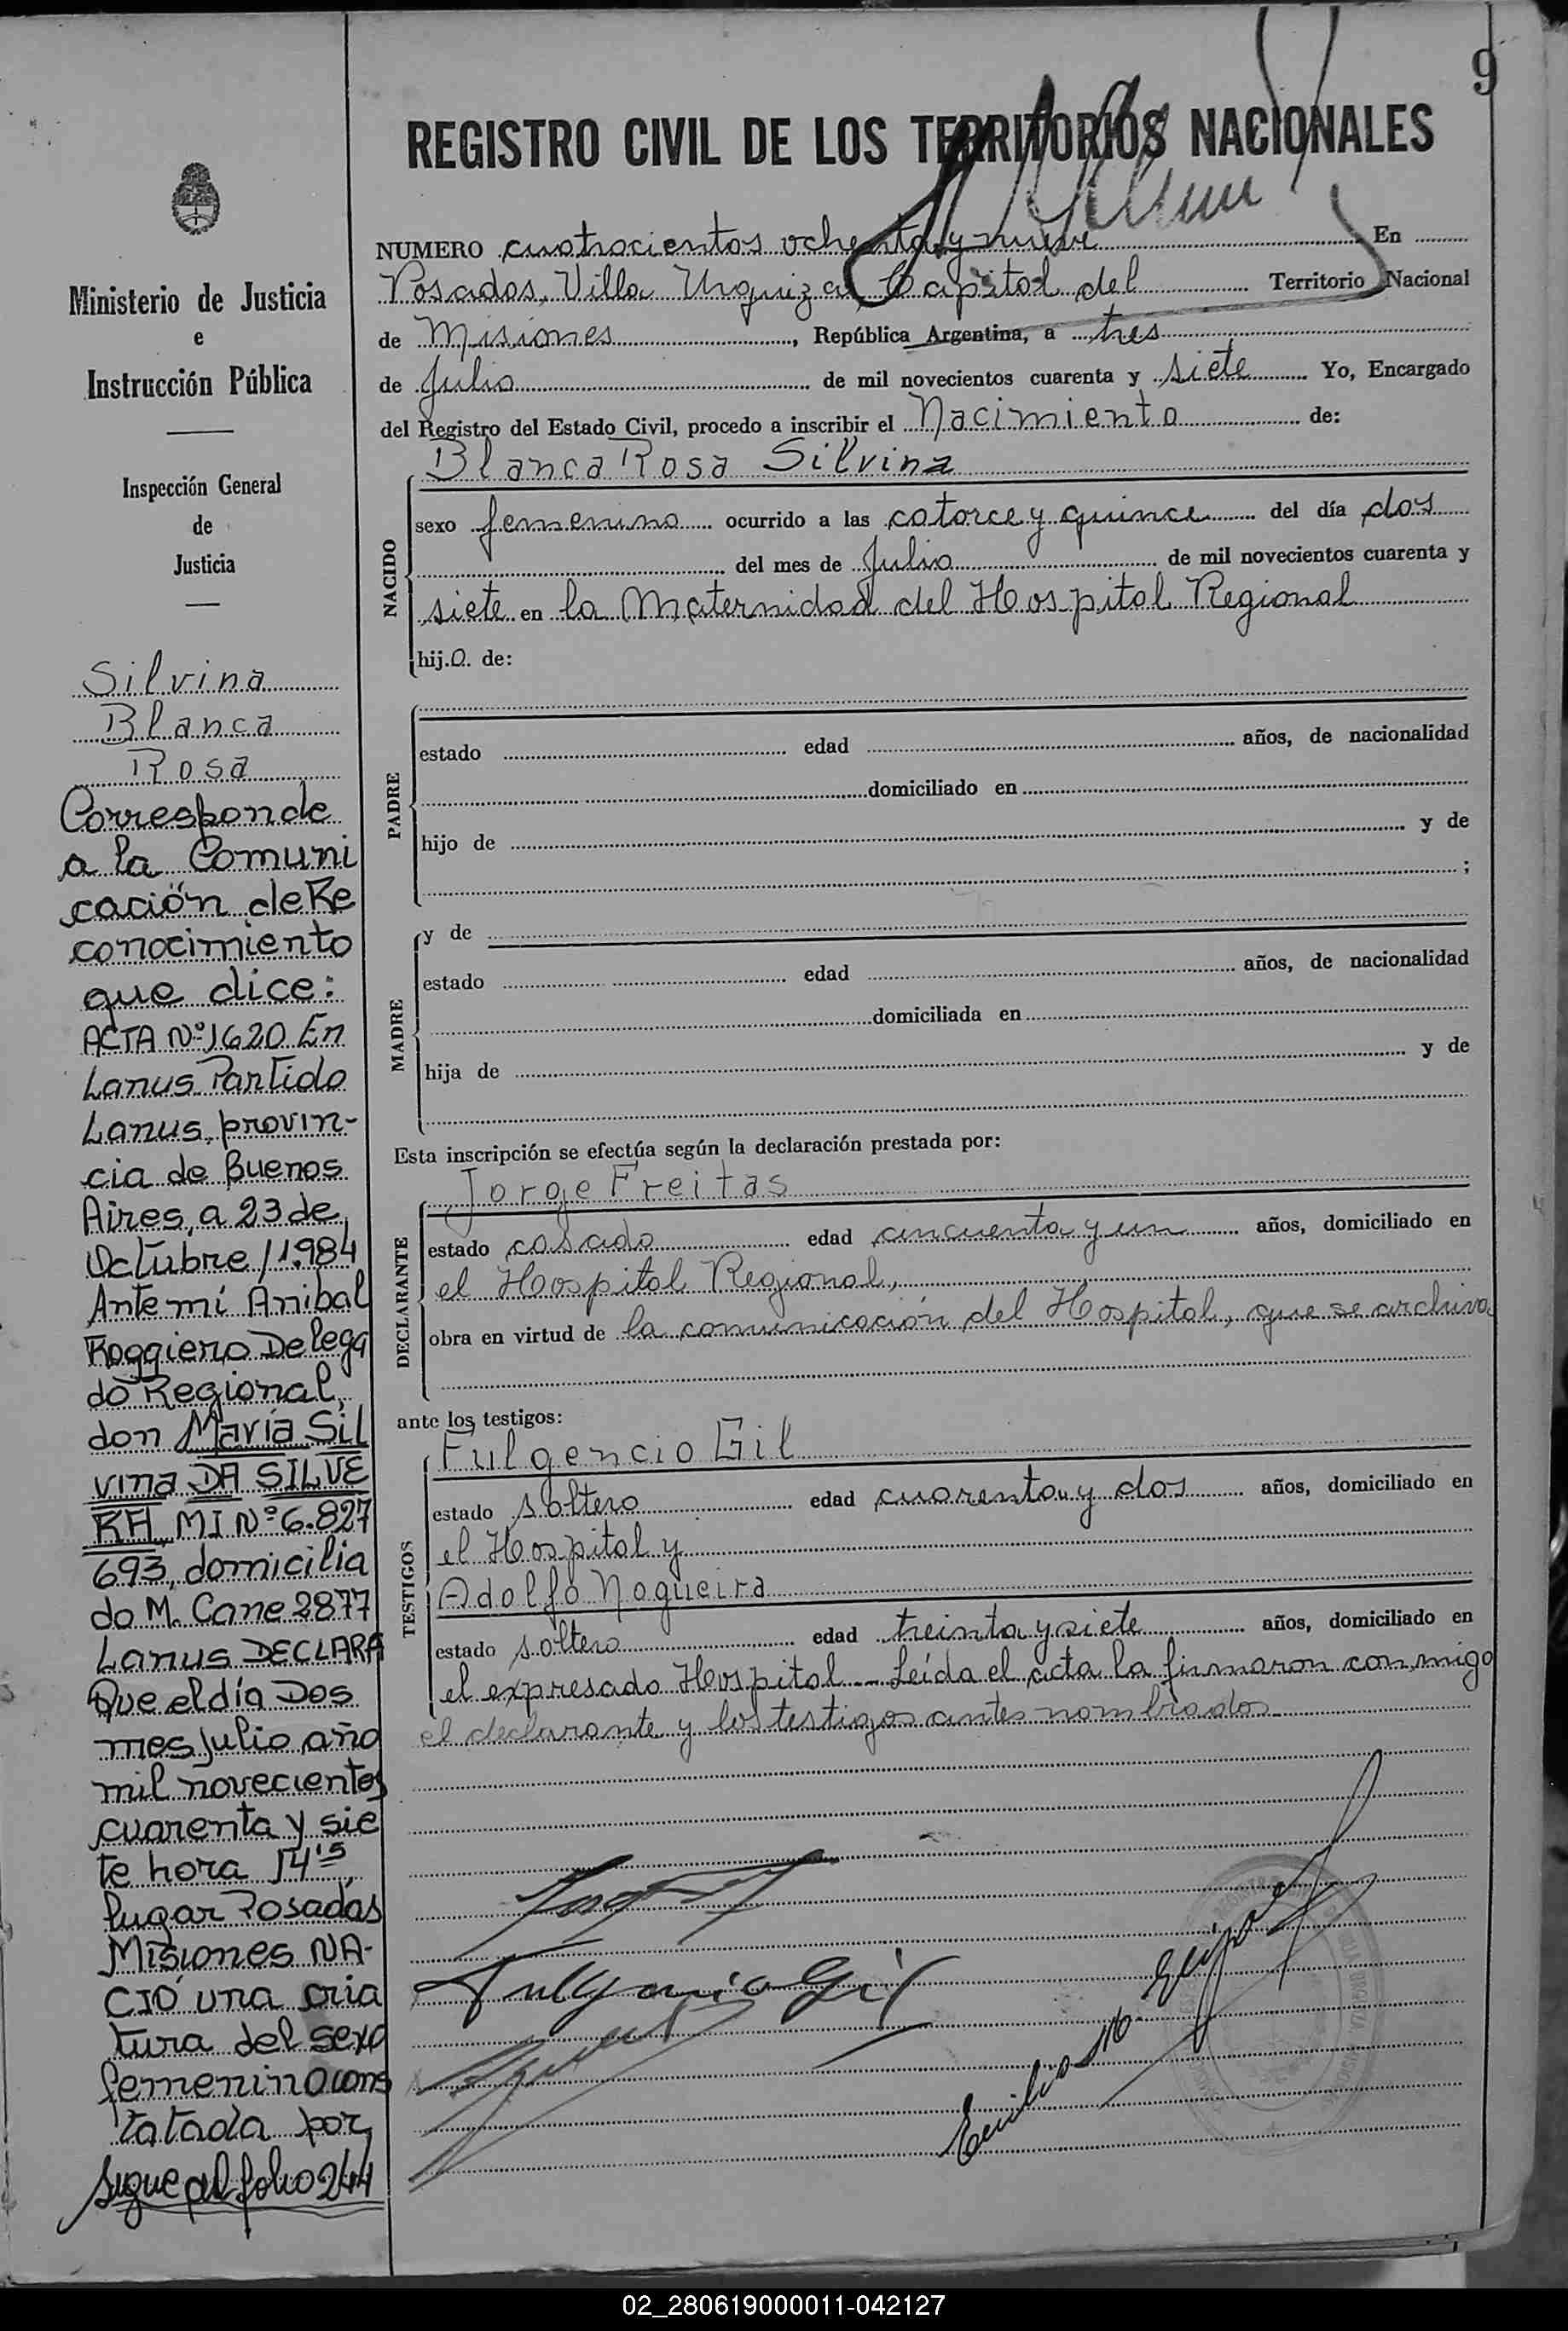 9
REGISTRO CIVIL DE LOS TERRITORIOS NACIONALES
Ministerio de Justicia
e
Instrucción Pública
Inspección General
de
Justicia
Silvina
Blanca
Rosa
Corresponde
a la Comuni
cación de Re
conocimiento
que dice:
ACTA Nº 1620 En
Lanus Partido
Lanus, provin-
cia de Buenos
Aires, a 23 de
Octubre / 1.984
Ante mí Anibal
Roggiero Delega
do Regional,
don María Sil
vina DA SILVE
RA, MI Nº 6.827
693, domicilia
do M. Cane 2877
Lanus DECLARA
Que el día Dos
mes Julio año
mil novecientos
cuarenta y sie
te hora 14 15
lugar Posadas
Misiones NA-
CIÓ una cria
tura del sexo
femenino cons
tatada por
sigue al folio 244
NUMERO cuatrocientos ochenta y nueve En
Posadas, Villa Urquiza, Capital del Territorio Nacional
de Misiones, República Argentina, a tres
de Julio de mil novecientos cuarenta y siete Yo, Encargado
del Registro del Estado Civil, procedo a inscribir el Nacimiento de:
Blanca Rosa Silvina
NACIDO
sexo femenino ocurrido a las catorce y quince del día dos
del mes de Julio de mil novecientos cuarenta y
siete en la Maternidad del Hospital Regional
hij.a. de:
PADRE
estado edad años, de nacionalidad
domiciliado en
hijo de y de
;
MADRE
y de
estado edad años, de nacionalidad
domiciliada en
hija de y de
Esta inscripción se efectúa según la declaración prestada por:
Jorge Freitas
DECLARANTE
estado casado edad cincuenta y un años, domiciliado en
el Hospital Regional,
obra en virtud de la comunicación del Hospital, que se archiva
ante los testigos:
Fulgencio Gil
TESTIGOS
estado soltero edad cuarenta y dos años, domiciliado en
el Hospital y
Adolfo Nogueira
estado soltero edad treinta y siete años, domiciliado en
el expresado Hospital.- Leída el acta la firmaron conmigo
el declarante y los testigos antes nombrados
Fulgencio Gil
02_280619000011-042127